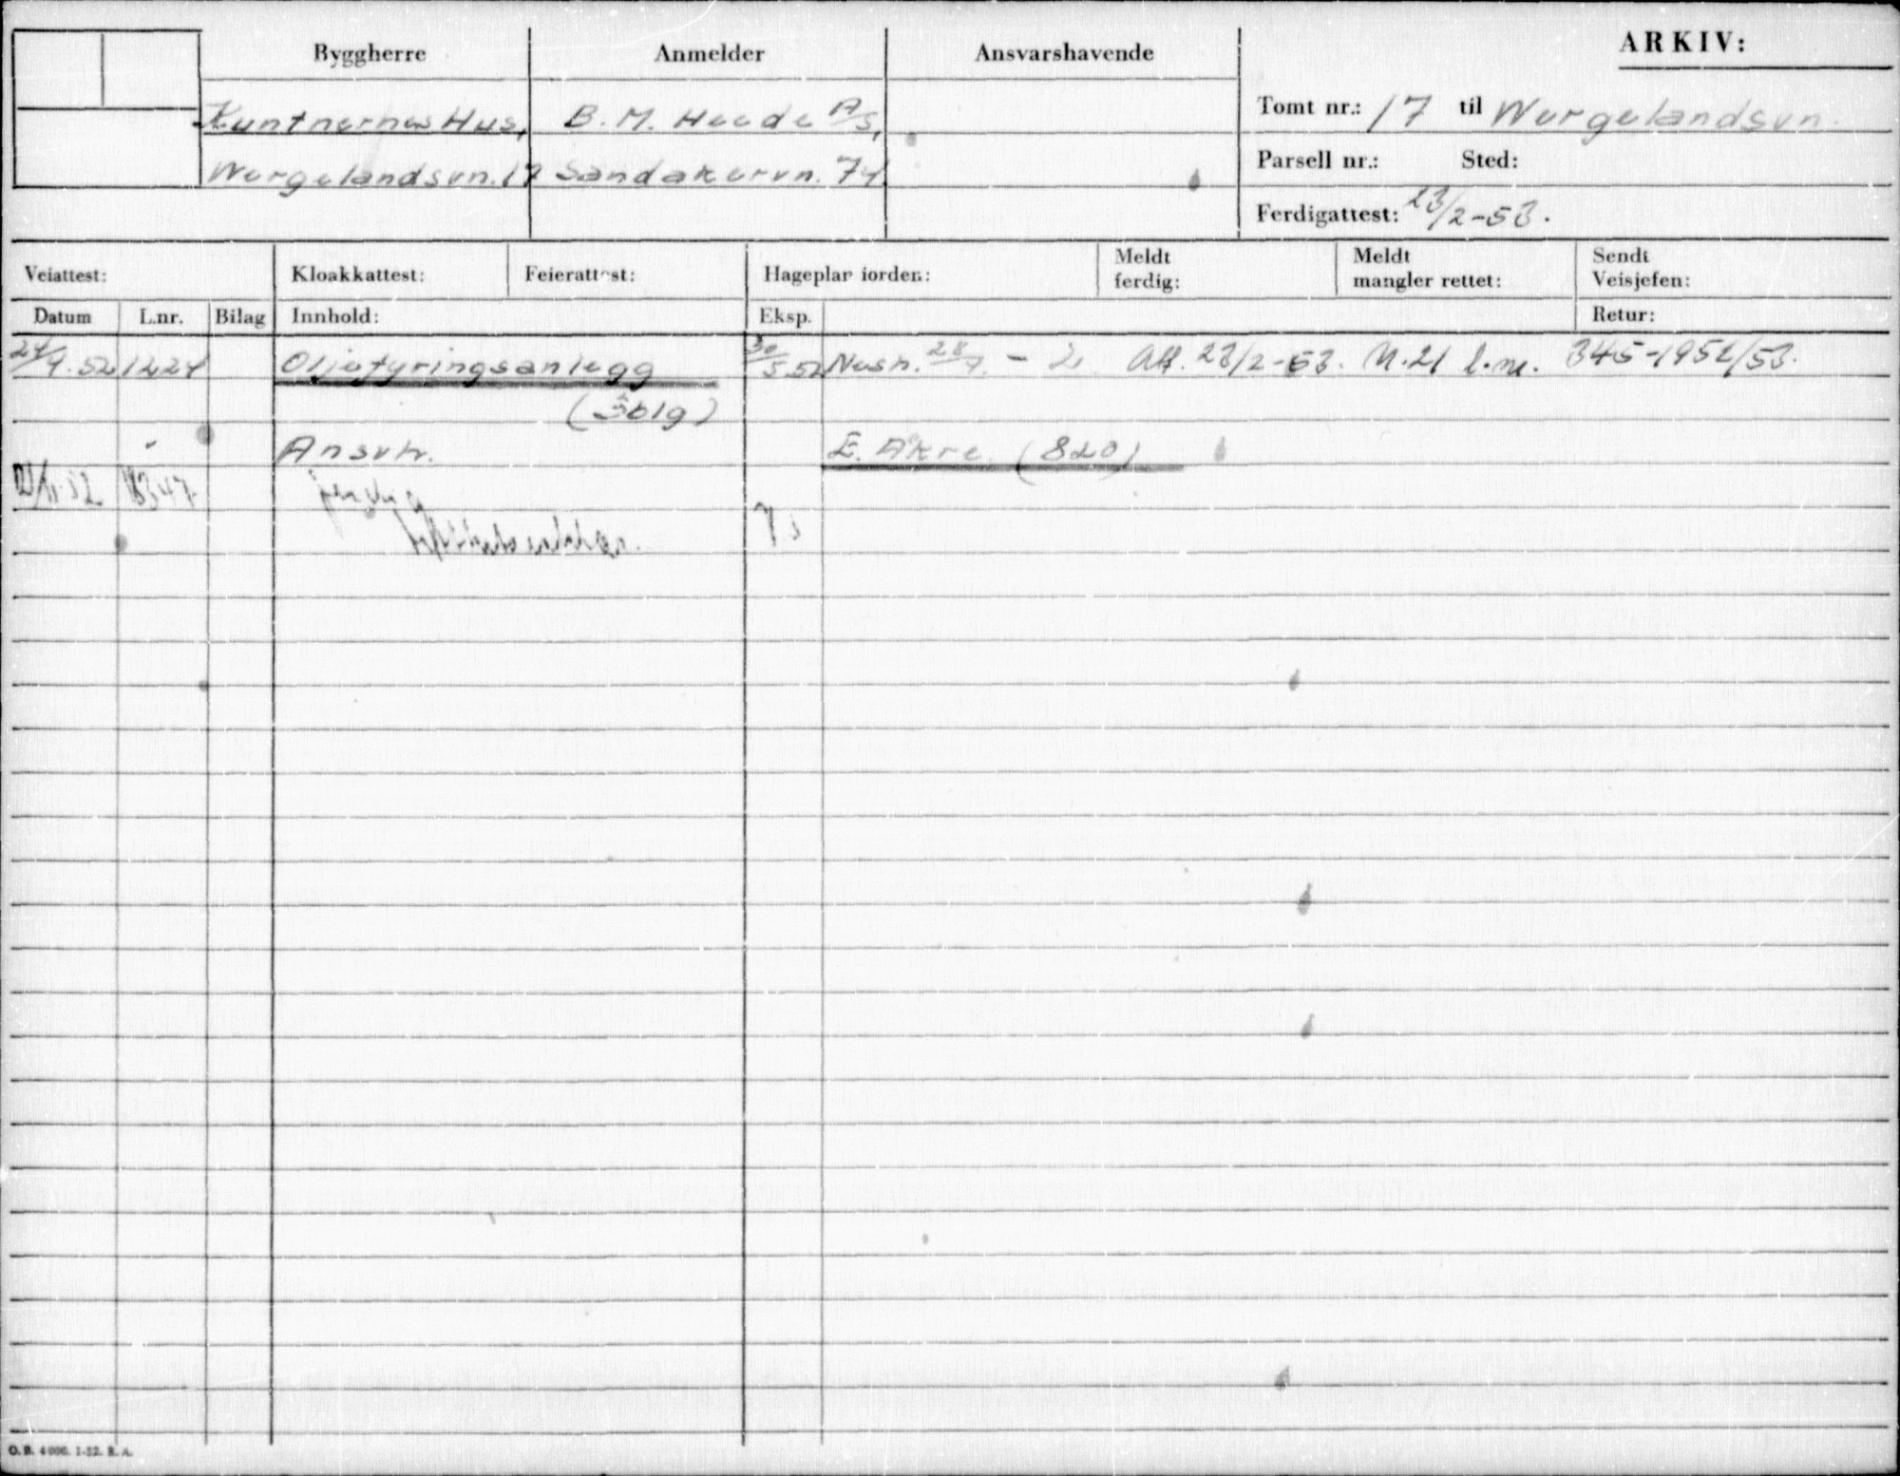 ARKIV:
Byggherre Anmelder Ansvarshavende
Kuntnernes Hus, B. M. Heede A/S,
Wergelandsvn. 17 Sandakervn. 74
Tomt nr.: 17 til Wergelandsvn.
Parsell nr.: Sted:
Ferdigattest: 23/2-53.
Veiattest: Kloakkattest: Feierattest: Hageplan iorden: Meldt ferdig: Meldt mangler rettet: Sendt Veisjefen:
Datum L.nr. Bilag Innhold: Eksp. Retur:
24/4.52 1224 Oljefyringsanlegg 30/5.52 Att. 23/2-53. M.21 l.nr. 345-1952/53.
(3blg)
" Ansvh. E. Akre. (820)
18347 ferdig
O.B. 4000. 1-52. R.A.